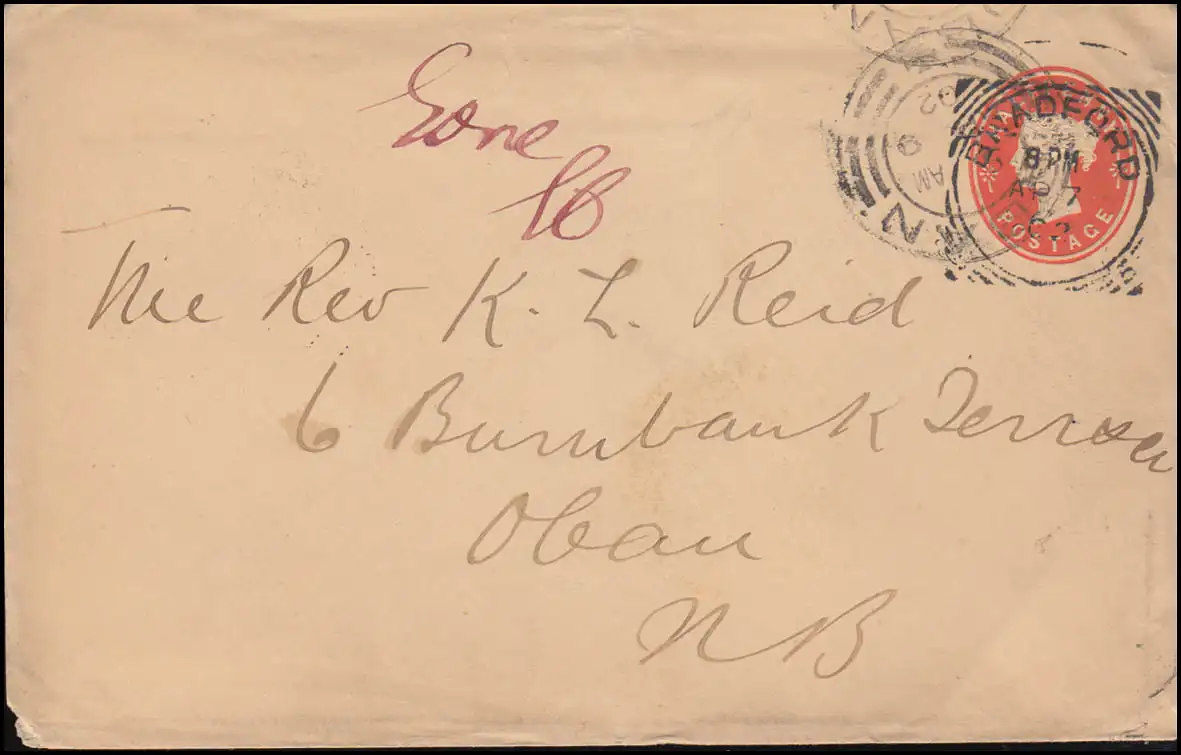 Gone
The Rev K. L. Reid
6 Burnbank Terrace
Oban
N B
BRADFORD
8 PM
AP 7
02
POSTAGE
9
AM
02